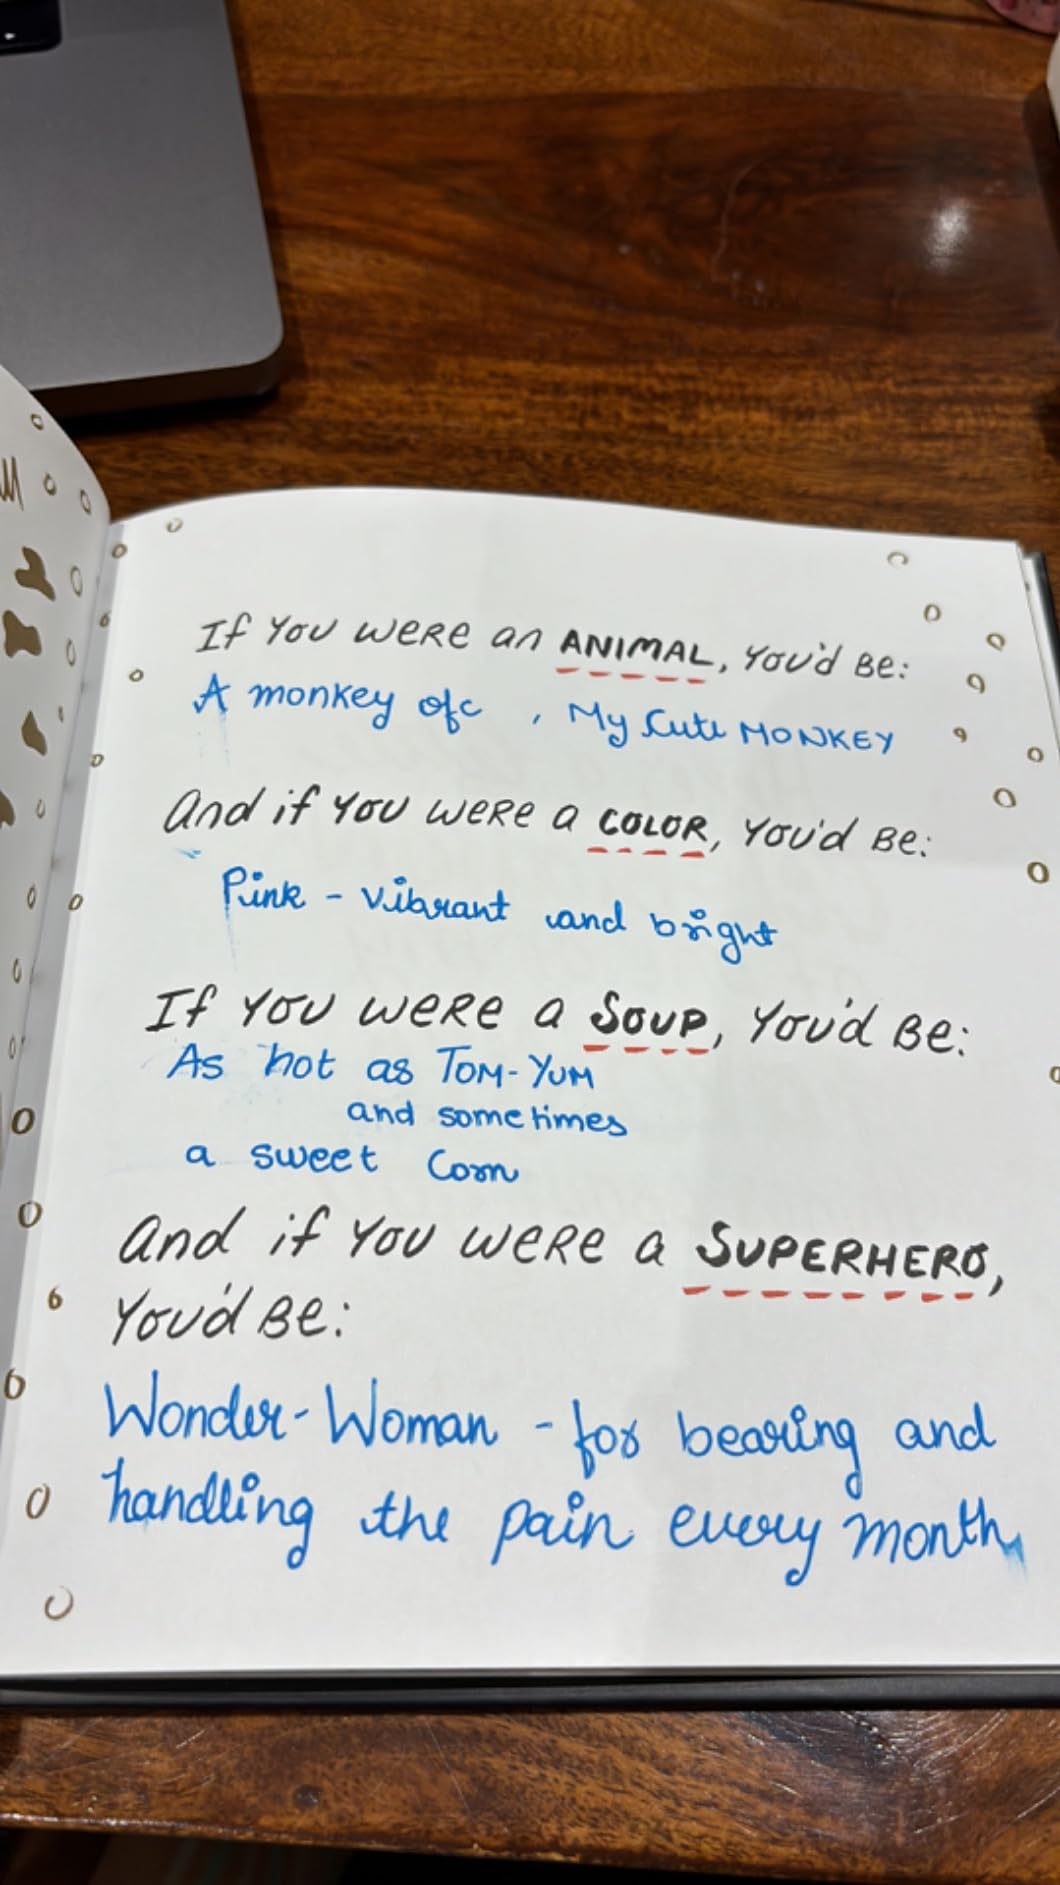 If You were an ANIMAL, You'd Be:
A monkey ofc , My Cute MONKEY
And if You were a COLOR, You'd Be:
Pink - vibrant and bright
If You were a Soup, You'd Be:
As hot as TOM-YUM
and sometimes
a sweet Corn
And if You were a SUPERHERO,
You'd Be:
Wonder-Woman - for bearing and
handling the pain every month